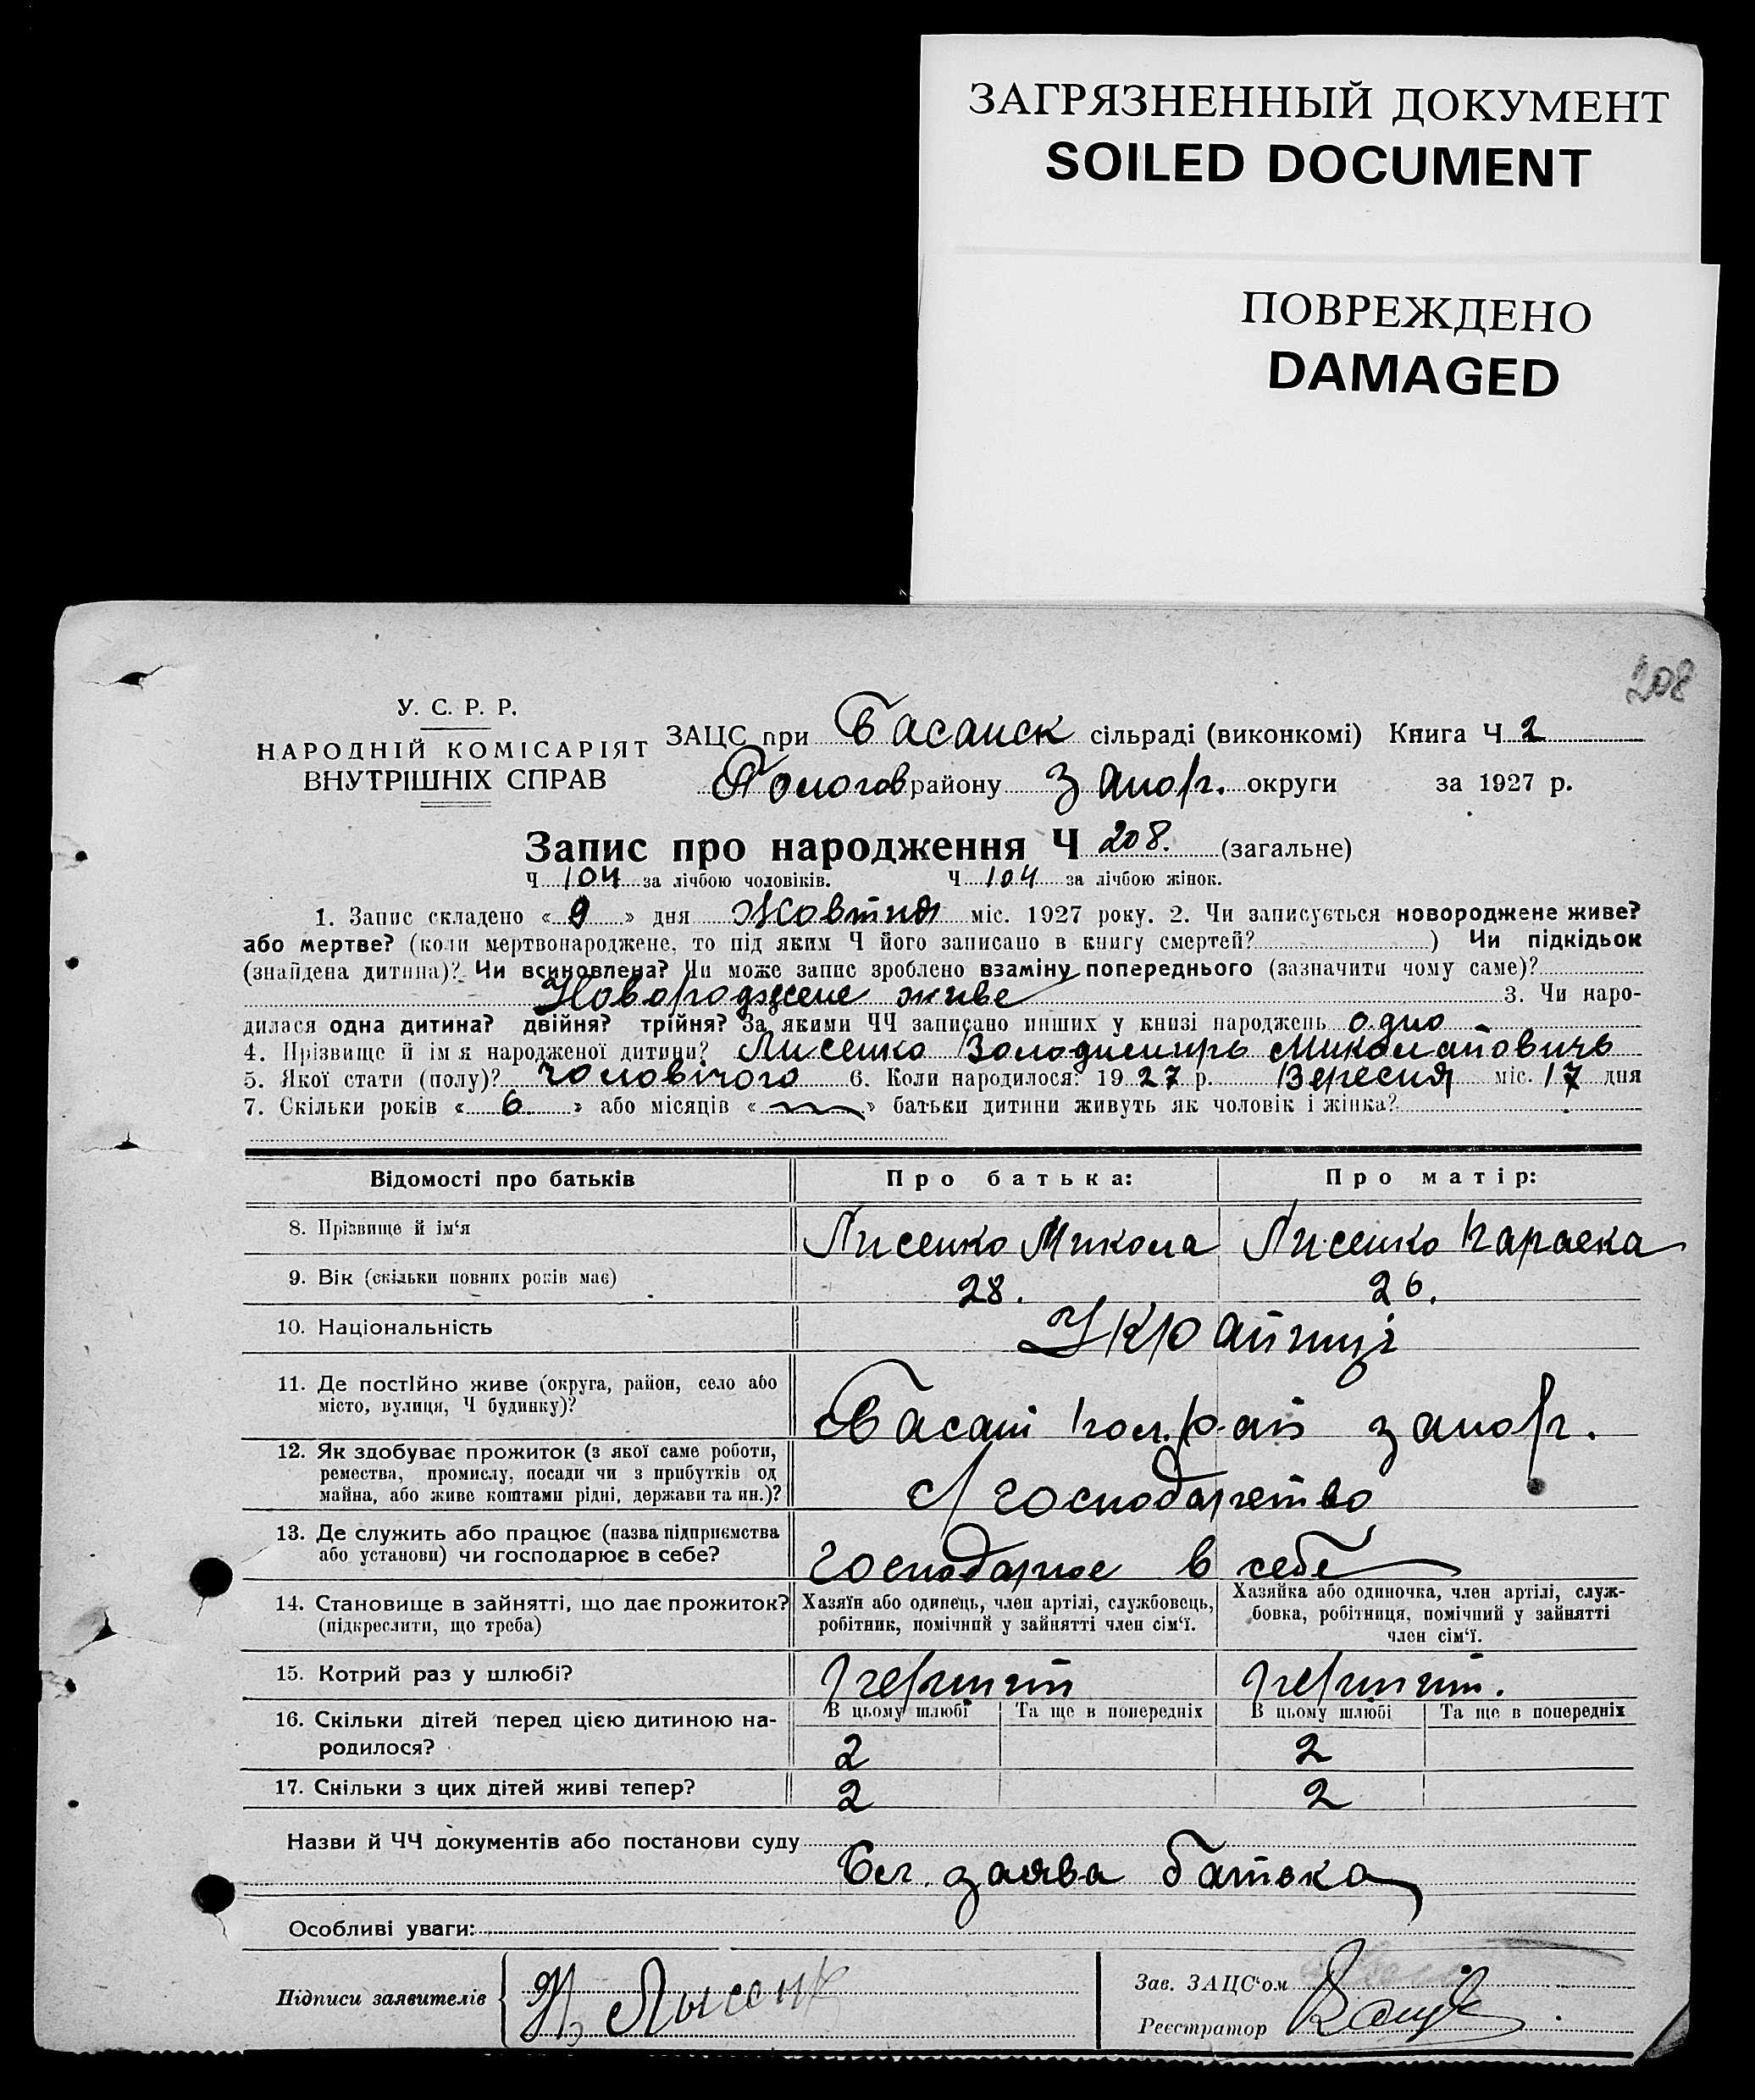 ЗАГРЯЗНЕННЫЙ ДОКУМЕНТ
SOILED DOCUMENT
ПОВРЕЖДЕНО
DAMAGED
208
У. С. Р. Р.
НАРОДНІЙ КОМІСАРІЯТ
ВНУТРІШНІХ СПРАВ
ЗАЦС при Басанск сільраді (виконкомі) Книга Ч 2
Пологов району Запор. округи за 1927 р.
Запис про народження Ч 208. (загальне)
Ч 104 за лічбою чоловіків. Ч 104 за лічбою жінок.
1. Запис складено « 9 » дня Жовтня міс. 1927 року. 2. Чи записується новороджене живе?
або мертве? (коли мертвонароджене, то під яким Ч його записано в книгу смертей? ) Чи підкідьок
(знайдена дитина)? Чи всиновлена? Чи може запис зроблено взаміну попереднього (зазначити чому саме)?
Новороджене живе 3. Чи наро-
дилася одна дитина? двійня? трійня? За якими ЧЧ записано инших у книзі народжень одно
4. Прізвище й ім'я народженої дитини? Лисенко Володимирь Миколайовичь
5. Якої стати (полу)? чоловічого 6. Коли народилося? 1927 р. Вересня міс. 17 дня
7. Скільки років « 6 » або місяців « » батьки дитини живуть як чоловік і жінка?
Відомості про батьків Про батька: Про матір:
8. Прізвище й ім'я Лисенко Микола Лисенко Параска
9. Вік (скільки повних років має) 28. 26.
10. Національність Українці
11. Де постійно живе (округа, район, село або
місто, вулиця, Ч будинку)? Басані пол. рай запор.
12. Як здобуває прожиток (з якої саме роботи,
ремества, промислу, посади чи з прибутків од
майна, або живе коштами рідні, держави та ин.)? С/господарство
13. Де служить або працює (назва підприємства
або установи) чи господарює в себе? господарює в себе
14. Становище в зайнятті, що дає прожиток?
(підкреслити, що треба)
Хазяїн або одинець, член артілі, службовець,
робітник, помічний у зайнятті член сім'ї.
Хазяйка або одиночка, член артілі, служ-
бовка, робітниця, помічний у зайнятті
член сім'ї.
15. Котрий раз у шлюбі?
В цьому шлюбі Та ще в попередніх В цьому шлюбі Та ще в попередніх
16. Скільки дітей перед цією дитиною на-
родилося? 2 2
17. Скільки з цих дітей живі тепер? 2 2
Назви й ЧЧ документів або постанови суду
заява батька
Особливі уваги:
Підписи заявителів Лысенк
Зав. ЗАЦС'ом
Реєстратор